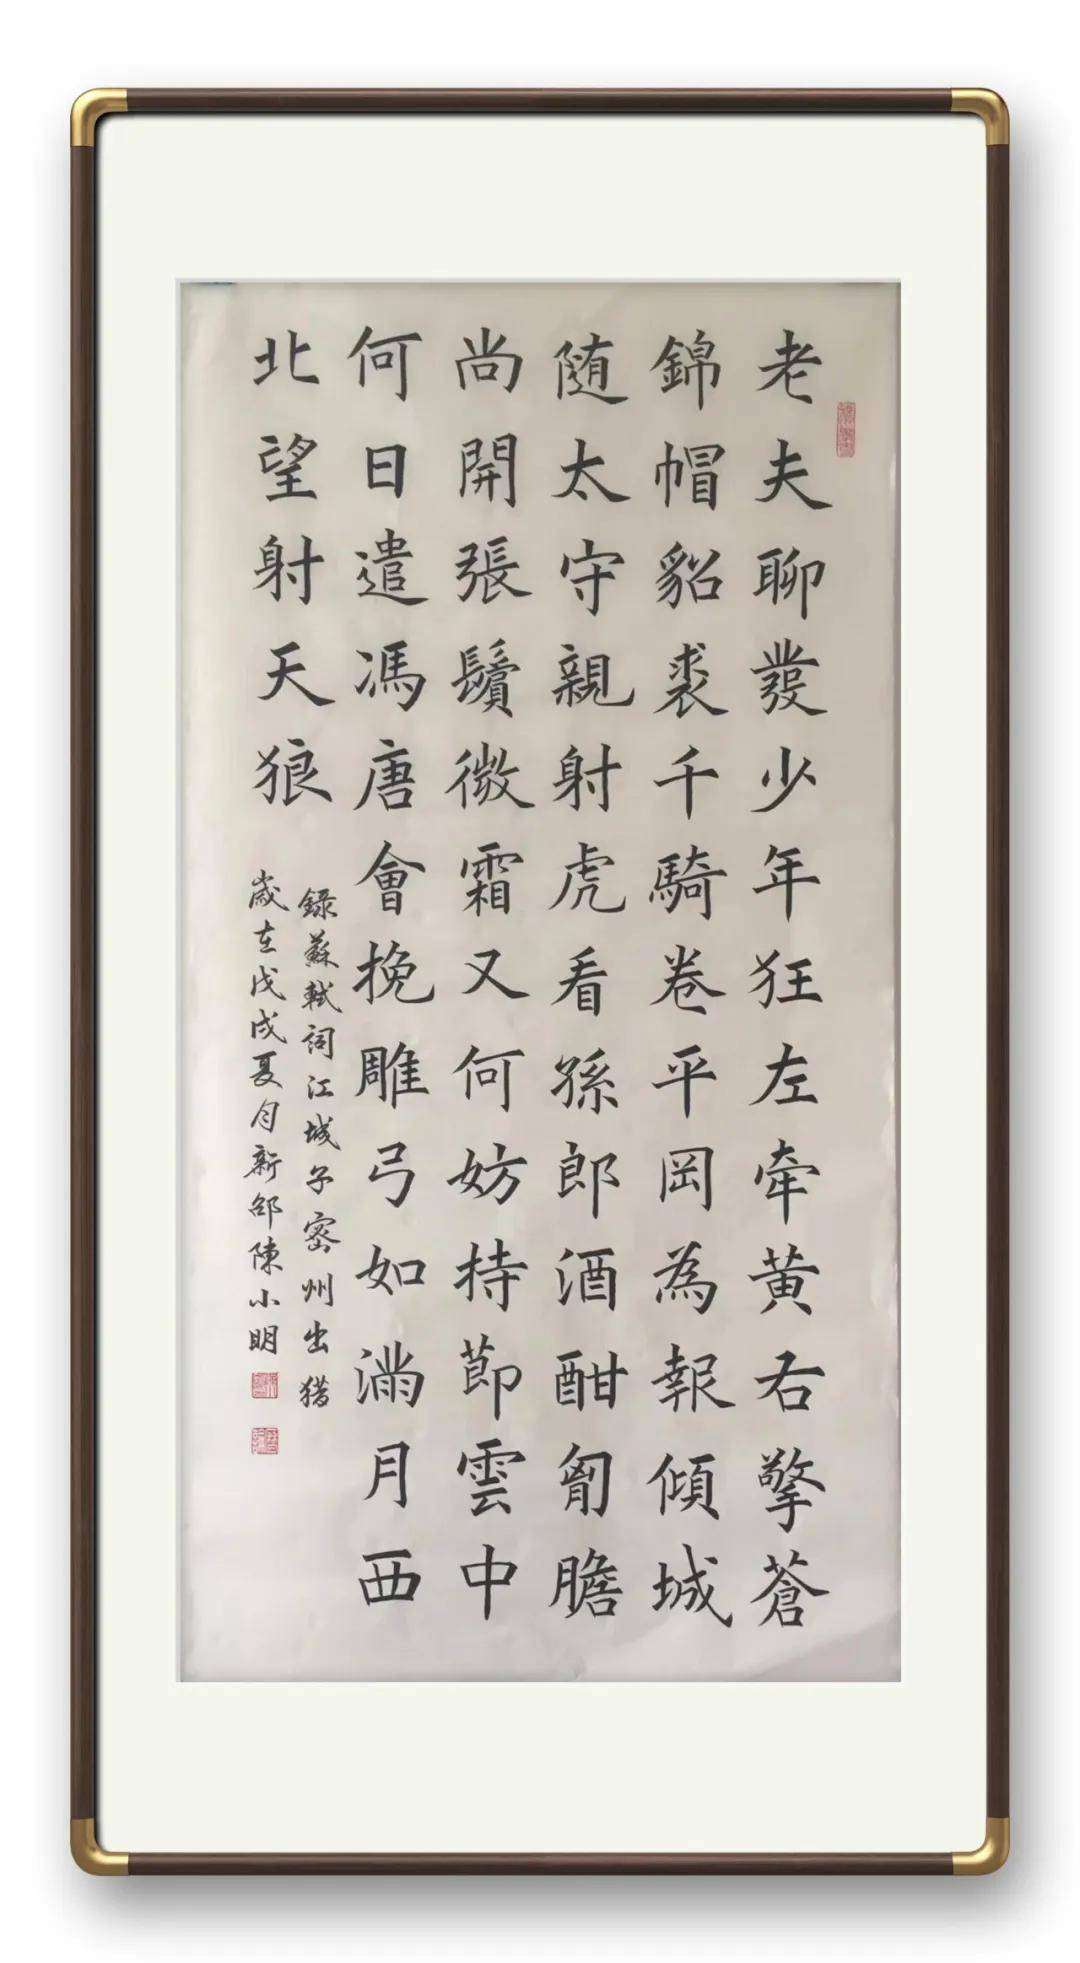 老夫聊發少年狂左牽黃右擎蒼
錦帽貂裘千騎卷平岡為報傾城
随太守親射虎看孫郎酒酣胷膽
尚開張鬢微霜又何妨持節雲中
何日遣馮唐會挽雕弓如滿月西
北望射天狼
錄蘇軾词江城子密州出猎
歲在戊戌夏月新邵陳小明